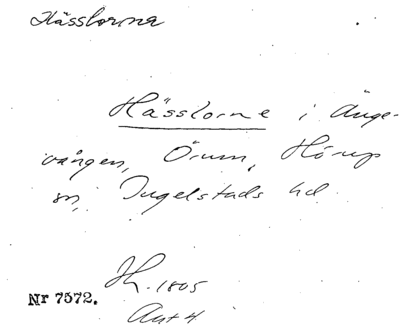 Hässlorna
Hässlorne i Änge-
vången, Örum, Hörup
sn, Ingelstads hd.
H. 1805
Nr 7572.
Akt 4